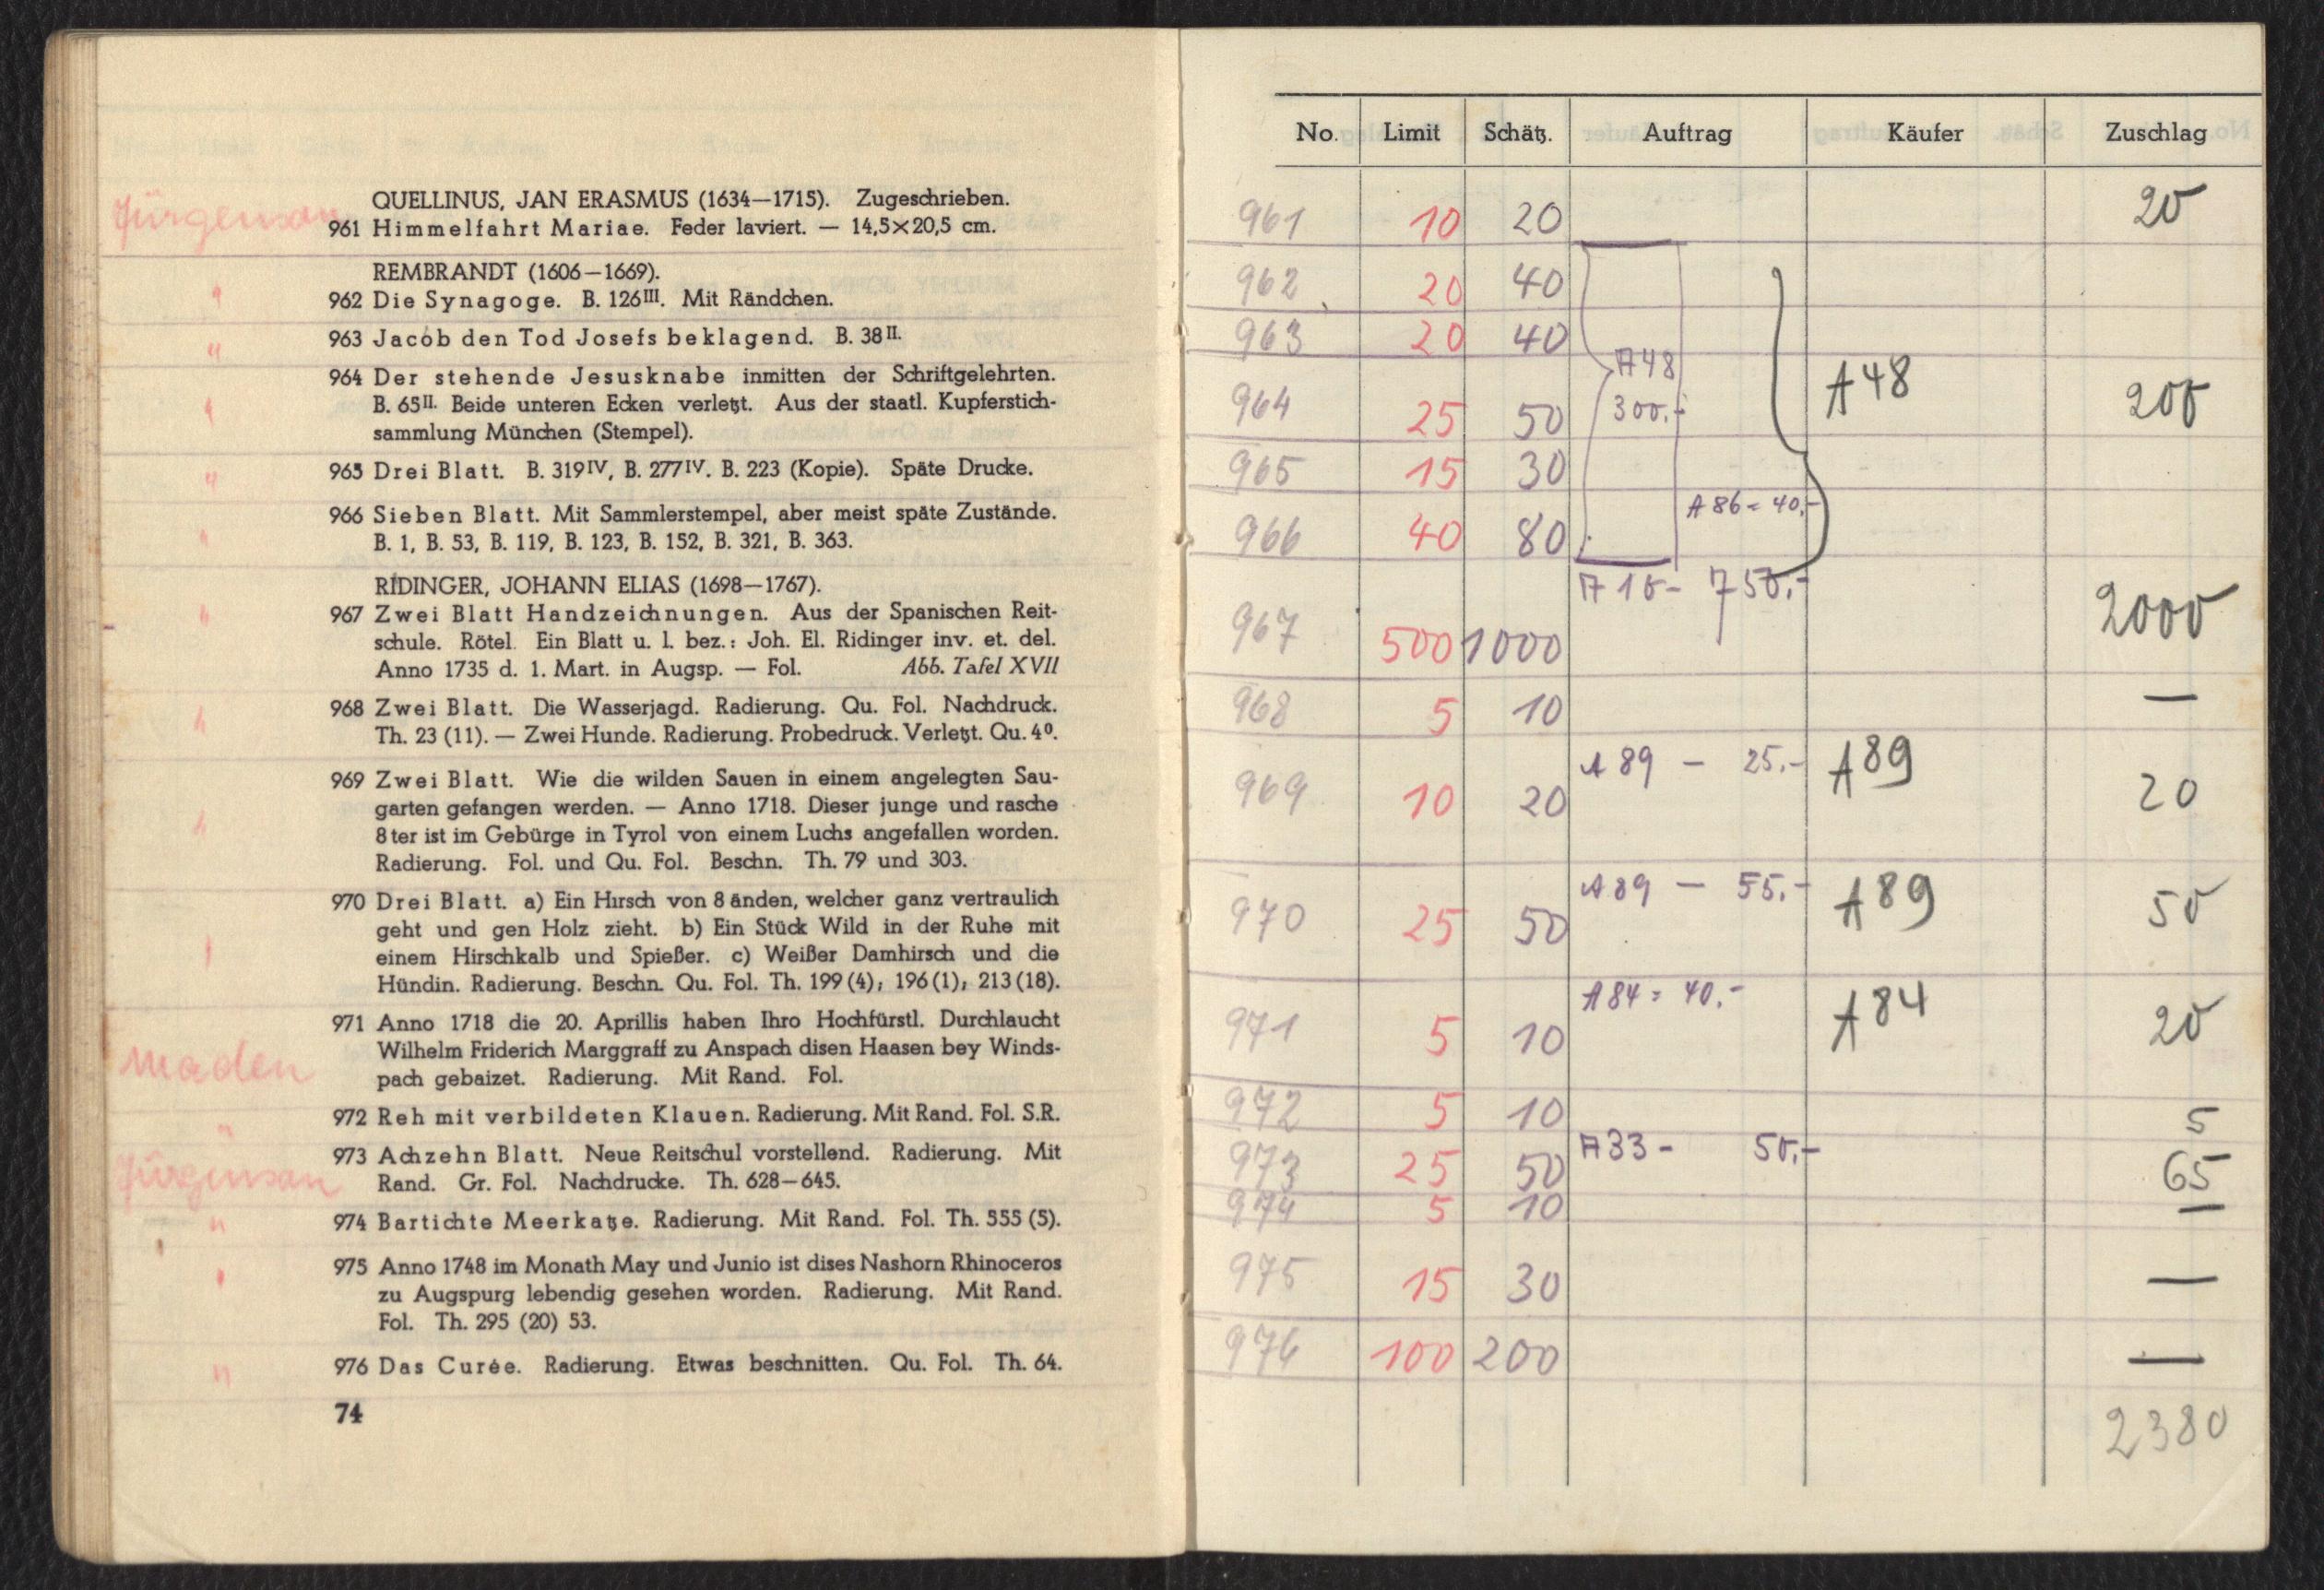 Jürgensan
QUELLINUS, JAN ERASMUS (1634—1715). Zugeschrieben.
961 Himmelfahrt Mariae. Feder laviert. — 14,5×20,5 cm.
REMBRANDT (1606—1669).
" 962 Die Synagoge. B. 126III. Mit Rändchen.
" 963 Jacob den Tod Josefs beklagend. B. 38II.
" 964 Der stehende Jesusknabe inmitten der Schriftgelehrten.
B. 65II. Beide unteren Ecken verletzt. Aus der staatl. Kupferstich-
sammlung München (Stempel).
" 965 Drei Blatt. B. 319IV, B. 277IV. B. 223 (Kopie). Späte Drucke.
" 966 Sieben Blatt. Mit Sammlerstempel, aber meist späte Zustände.
B. 1, B. 53, B. 119, B. 123, B. 152, B. 321, B. 363.
RIDINGER, JOHANN ELIAS (1698—1767).
" 967 Zwei Blatt Handzeichnungen. Aus der Spanischen Reit-
schule. Rötel. Ein Blatt u. l. bez.: Joh. El. Ridinger inv. et. del.
Anno 1735 d. 1. Mart. in Augsp. — Fol. Abb. Tafel XVII
" 968 Zwei Blatt. Die Wasserjagd. Radierung. Qu. Fol. Nachdruck.
Th. 23 (11). — Zwei Hunde. Radierung. Probedruck. Verletzt. Qu. 4⁰.
" 969 Zwei Blatt. Wie die wilden Sauen in einem angelegten Sau-
garten gefangen werden. — Anno 1718. Dieser junge und rasche
8 ter ist im Gebürge in Tyrol von einem Luchs angefallen worden.
Radierung. Fol. und Qu. Fol. Beschn. Th. 79 und 303.
" 970 Drei Blatt. a) Ein Hirsch von 8 änden, welcher ganz vertraulich
geht und gen Holz zieht. b) Ein Stück Wild in der Ruhe mit
einem Hirschkalb und Spießer. c) Weißer Damhirsch und die
Hündin. Radierung. Beschn. Qu. Fol. Th. 199 (4), 196 (1), 213 (18).
971 Anno 1718 die 20. Aprillis haben Ihro Hochfürstl. Durchlaucht
Maden Wilhelm Friderich Marggraff zu Anspach disen Haasen bey Winds-
pach gebaizet. Radierung. Mit Rand. Fol.
" 972 Reh mit verbildeten Klauen. Radierung. Mit Rand. Fol. S.R.
973 Achzehn Blatt. Neue Reitschul vorstellend. Radierung. Mit
Jürgensan Rand. Gr. Fol. Nachdrucke. Th. 628—645.
" 974 Bartichte Meerkatze. Radierung. Mit Rand. Fol. Th. 555 (5).
" 975 Anno 1748 im Monath May und Junio ist dises Nashorn Rhinoceros
zu Augspurg lebendig gesehen worden. Radierung. Mit Rand.
Fol. Th. 295 (20) 53.
" 976 Das Curée. Radierung. Etwas beschnitten. Qu. Fol. Th. 64.
74
No. Limit Schätz. Auftrag Käufer Zuschlag
961 10 20 20
962 20 40
963 20 40
A48
964 25 50 300.- A48 200
965 15 30
A86 = 40.-
966 40 80
A 10 - 750.-
967 500 1000 2000
968 5 10 —
A 89 — 25.- A89
969 10 20 20
A 89 — 55.- A89
970 25 50 50
A 84 = 40.- A84
971 5 10 20
972 5 10 5
A33 - 50.-
973 25 50 65
974 5 10 —
975 15 30 —
976 100 200 —
2380